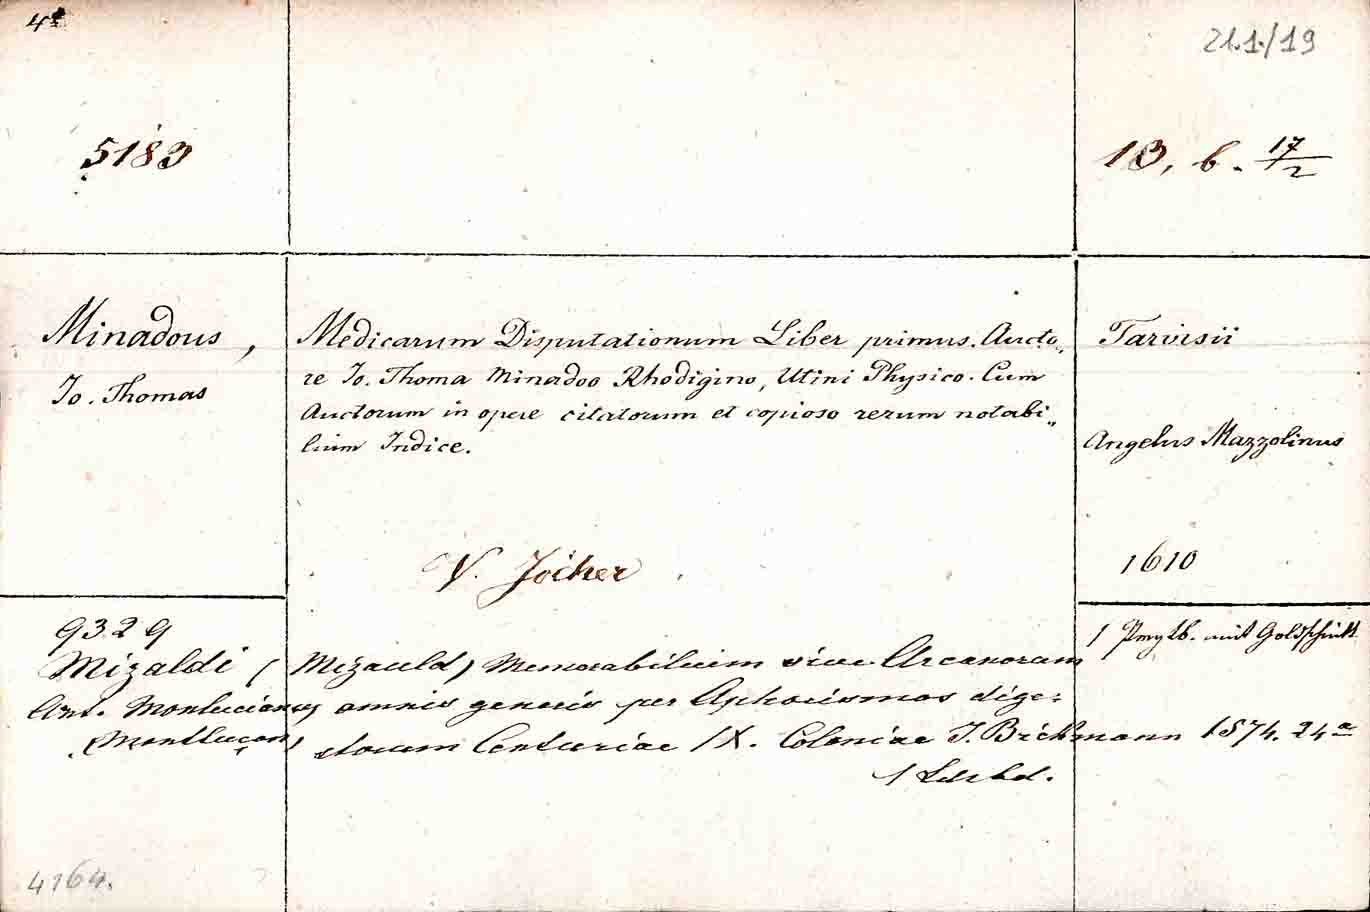 4°
21.1./19
5183
13, b. 17/2
Minadous,
Jo. Thomas
Medicarum Disputationum Liber primus. Aucto„
re Jo. Thoma Minadoo Rhodigino, Utini Physico. Cum
Auctorum in opere citatorum et copioso rerum notabi„
lium Indice.
Tarvisii
Angelus Mazzolinus
1610
V. Jöcher
1 Pmgtb. mit Goldschnitt
9329
Mizaldi (Mizauld) Memorabilium sive Arcanorum
Ant. Monlucianus omnis generis per Aphorismos dige-
(Montluçon) storum Centuriae IX. Coloniae J. Birkmann 1574. 24°
1 Ldrbd.
4164.